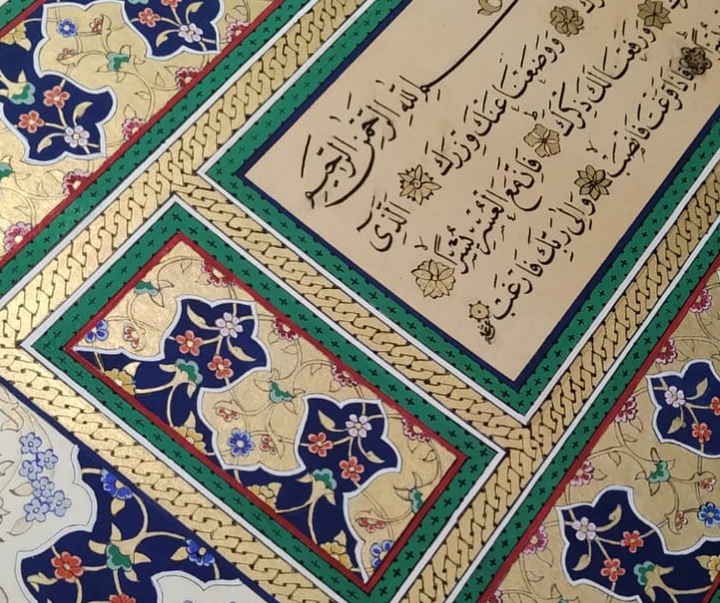 الله الرحمن الرحيم
ووضعنا عنك وزرك الذي
ورفعنا لك ذكرك فإن مع العسر يسرا
فإذا فرغت فانصب وإلى ربك فارغب